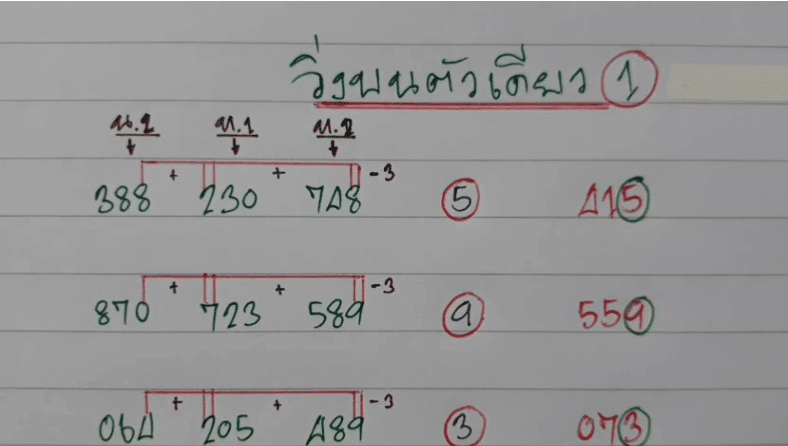 วิ่งบนตัวเดียว 1
+ + -3
388 230 748 5 415
+ + -3
870 723 589 9 559
+ + -3
064 205 489 3 073